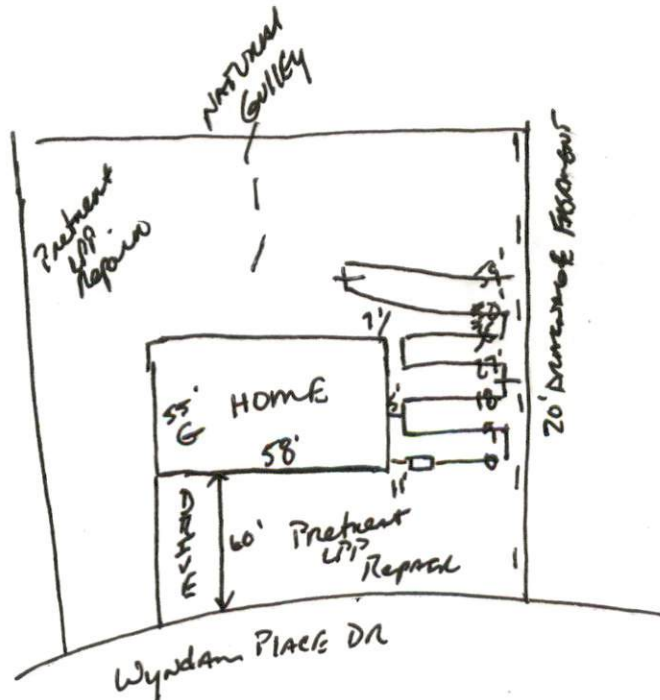 NATURAL
GULLEY
Pretment
LPP
Repair
20' DRAINAGE EASMENT
7'
50'
27'
18
9
0
55'
G
HOME
58'
5'
11'
DRIVE
60'
Pretment
LPP
Repair
Wyndam PLACE DR